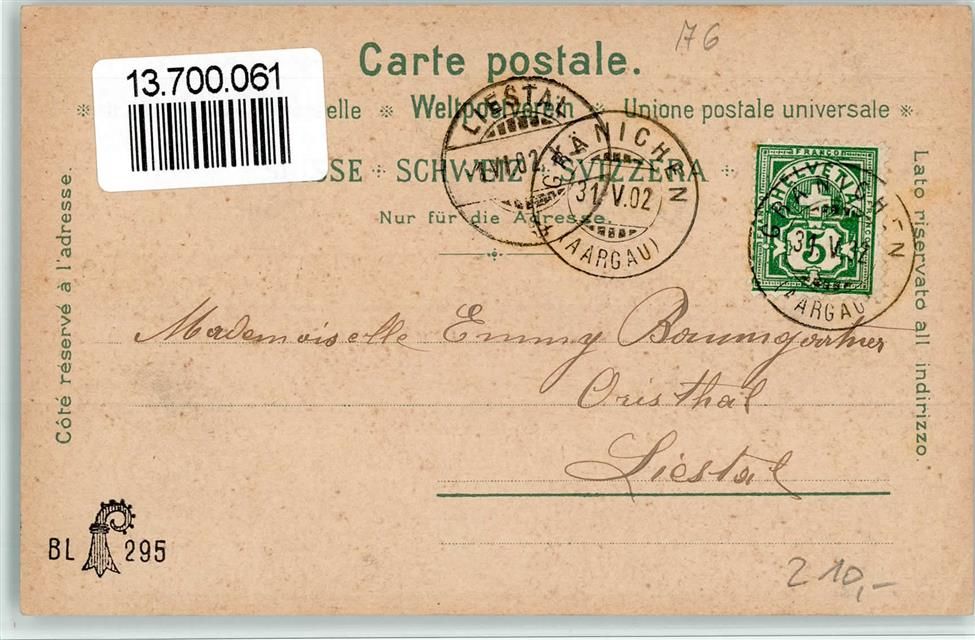 76
Carte postale.
13.700.061
elle * Weltpostverein * Unione postale universale *
SSE * SCHWEIZ * SVIZZERA *
Nur für die Adresse.
LIESTAL
1.VI.02
GRÄNICHEN
31.V.02
(AARGAU)
FRANCO
HELVETIA
5
GRÄNICHEN
31.V.02
(AARGAU)
Côté réservé à l'adresse.
Lato riservato all indirizzo.
Mademoiselle Emmy Baumgartner
Oristhal
Liestal
BL 295
210,-